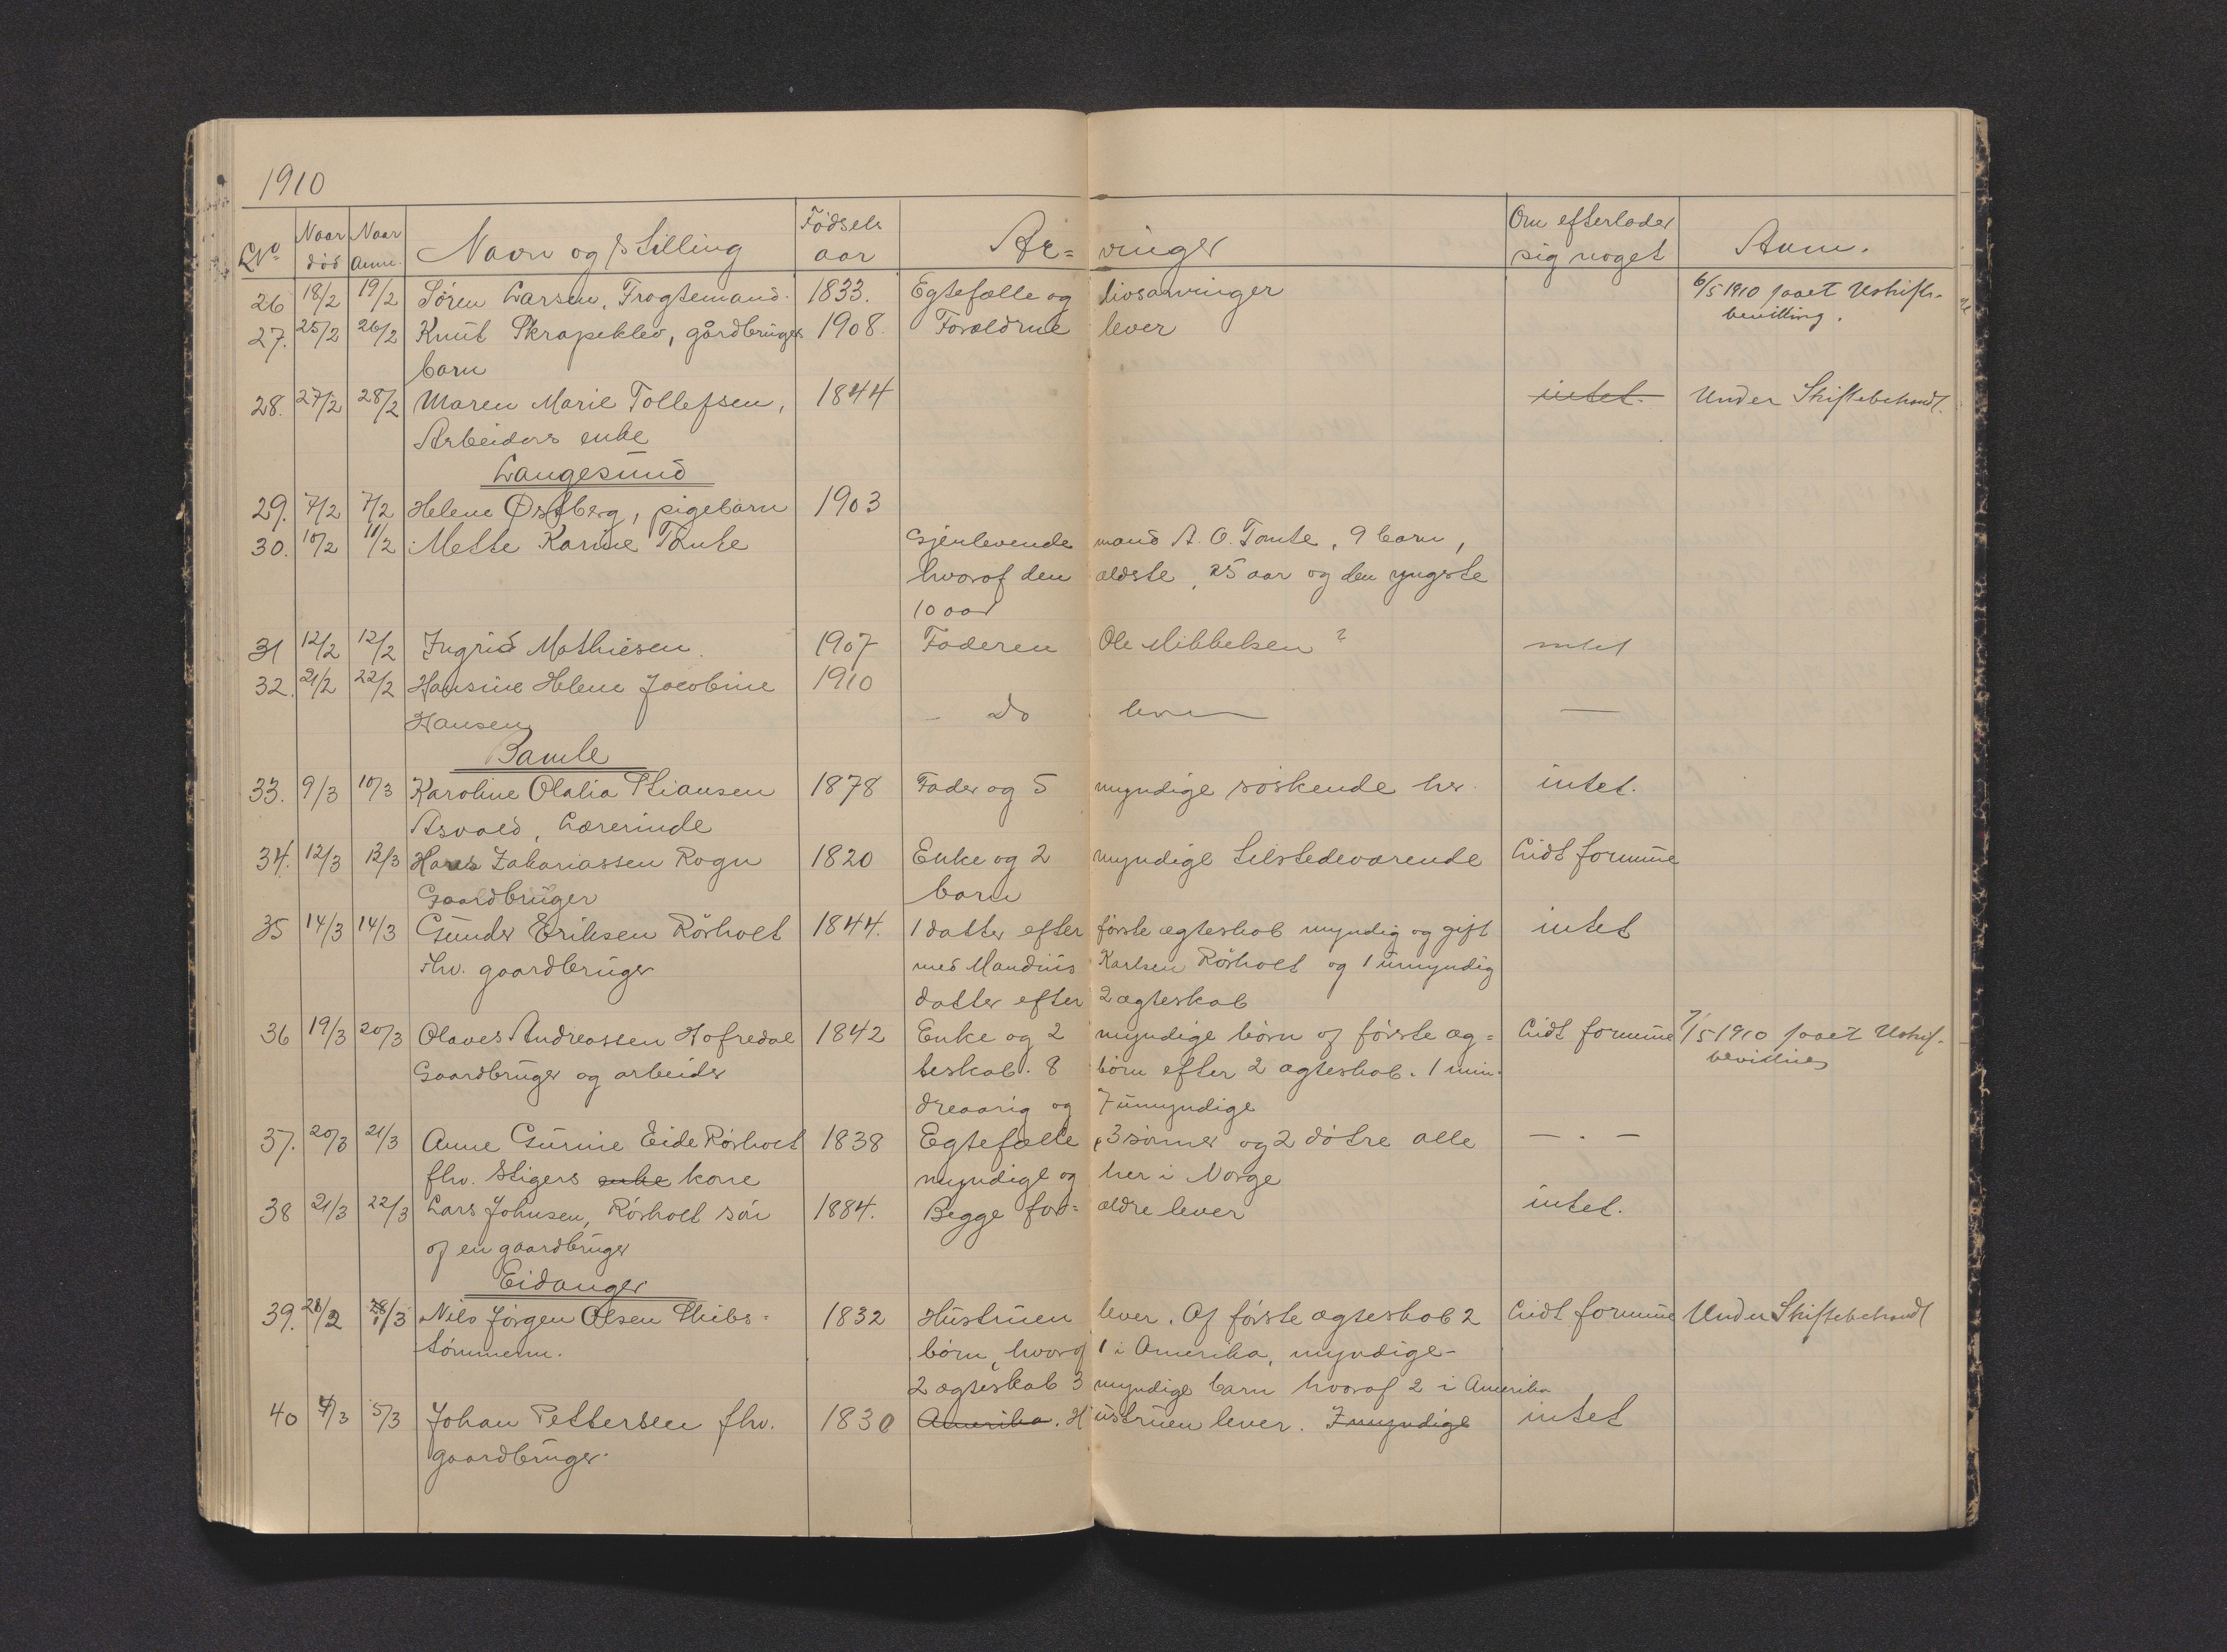 1910
LNo | Naar død | Naar Anm. | Navn og Stilling | Fødsels aar | Ar=vinger | Om efterlader sig noget | Anm.
26 | 18/2 | 19/2 | Søren Larsen, Fragtemand. | 1833. | Egtefælle og livsarvinger | | 6/5 1910 faaet Uskifte-
bevilling.
27. | 25/2 | 26/2 | Knut Skrapeklev, gårdbruger | 1908. | Forældrene lever
barn
28. | 27/2 | 28/2 | Maren Marie Tollefsen, | 1844 | | intet. | Under Skiftebehandl.
Arbeiders enke
Langesund
29. | 7/2 | 7/2 | Helene Østberg, pigebarn | 1903
30. | 10/2 | 11/2 | Mette Karine Tomte | | Gjenlevende mand A. O. Tomte, 9 barn,
hvoraf den ældste, 25 aar og den yngste
10 aar
31 | 12/2 | 12/2 | Ingrid Mathiesen. | 1907 | Faderen Ole Mikkelsen ? | intet
32. | 21/2 | 22/2 | Hansine Helene Jacobine | 1910
Hansen | | - do lever | —
Bamle
33. | 9/3 | 10/3 | Karoline Olalia Stiansen | 1878 | Fader og 5 myndige søskende her. | intet.
Asvald, Lærerinde
34. | 12/3 | 12/3 | Hans Zakariassen Rogn | 1820 | Enke og 2 myndige tilstedeværende | Lidt formue
Gaardbruger | | barn
35 | 14/3 | 14/3 | Gunder Eriksen Rørholt | 1844. | 1 datter efter første ægteskab myndig og gift | intet
fhv. gaardbruger | | med Mandius Karlsen Rørholt og 1 umyndig
datter efter 2 ægteskab
36 | 19/3 | 20/3 | Olaves Andreassen Hofredal | 1842 | Enke og 2 myndige børn af første æg= | Lidt formue | 7/5 1910 faaet Uskif.
Gaardbruger og arbeider | | teskab. 8 børn efter 2 ægteskab. 1 min-
bevilling
dreaarig og 7 umyndige
37. | 20/3 | 21/3 | Anne Gurine Eide Rørholt | 1838 | Egtefælle, 3 sønner og 2 døtre alle | — . —
fhv. Stigers enke kone | | myndige og her i Norge
38 | 21/3 | 22/3 | Lars Johnsen, Rørholt søn | 1884. | Begge for=ældre lever | intet.
af en gaardbruger
Eidanger
39. | 28/2 | 1/3 | Nils Jørgen Olsen Skibs- | 1832 | Hustruen lever. Af første ægteskab 2 | Lidt formue | Under Skiftebehandl
tømmerm. | | børn, hvoraf 1 i Amerika, myndige-
2 ægteskab 3 myndige barn hvoraf 2 i Amerika
40 | 4/3 | 5/3 | Johan Pettersen fhv. | 1830 | Amerika. Hustruen lever. 7 umyndige | intet
gaardbruger.